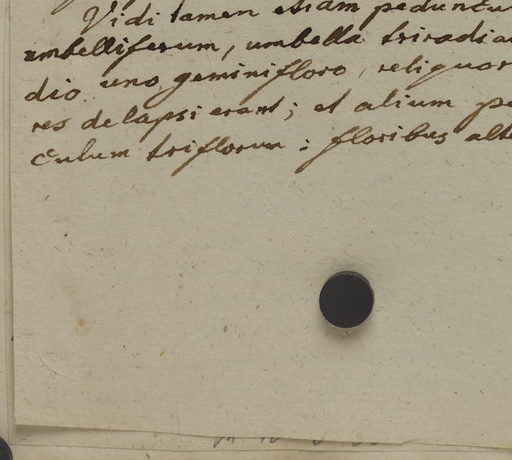 Vidi tamen etiam peduncu
umbelliferum, umbella triradia
dio uno geminifloro, reliquor
res delapsi erant; et alium pe
culum triflorum: floribus alte